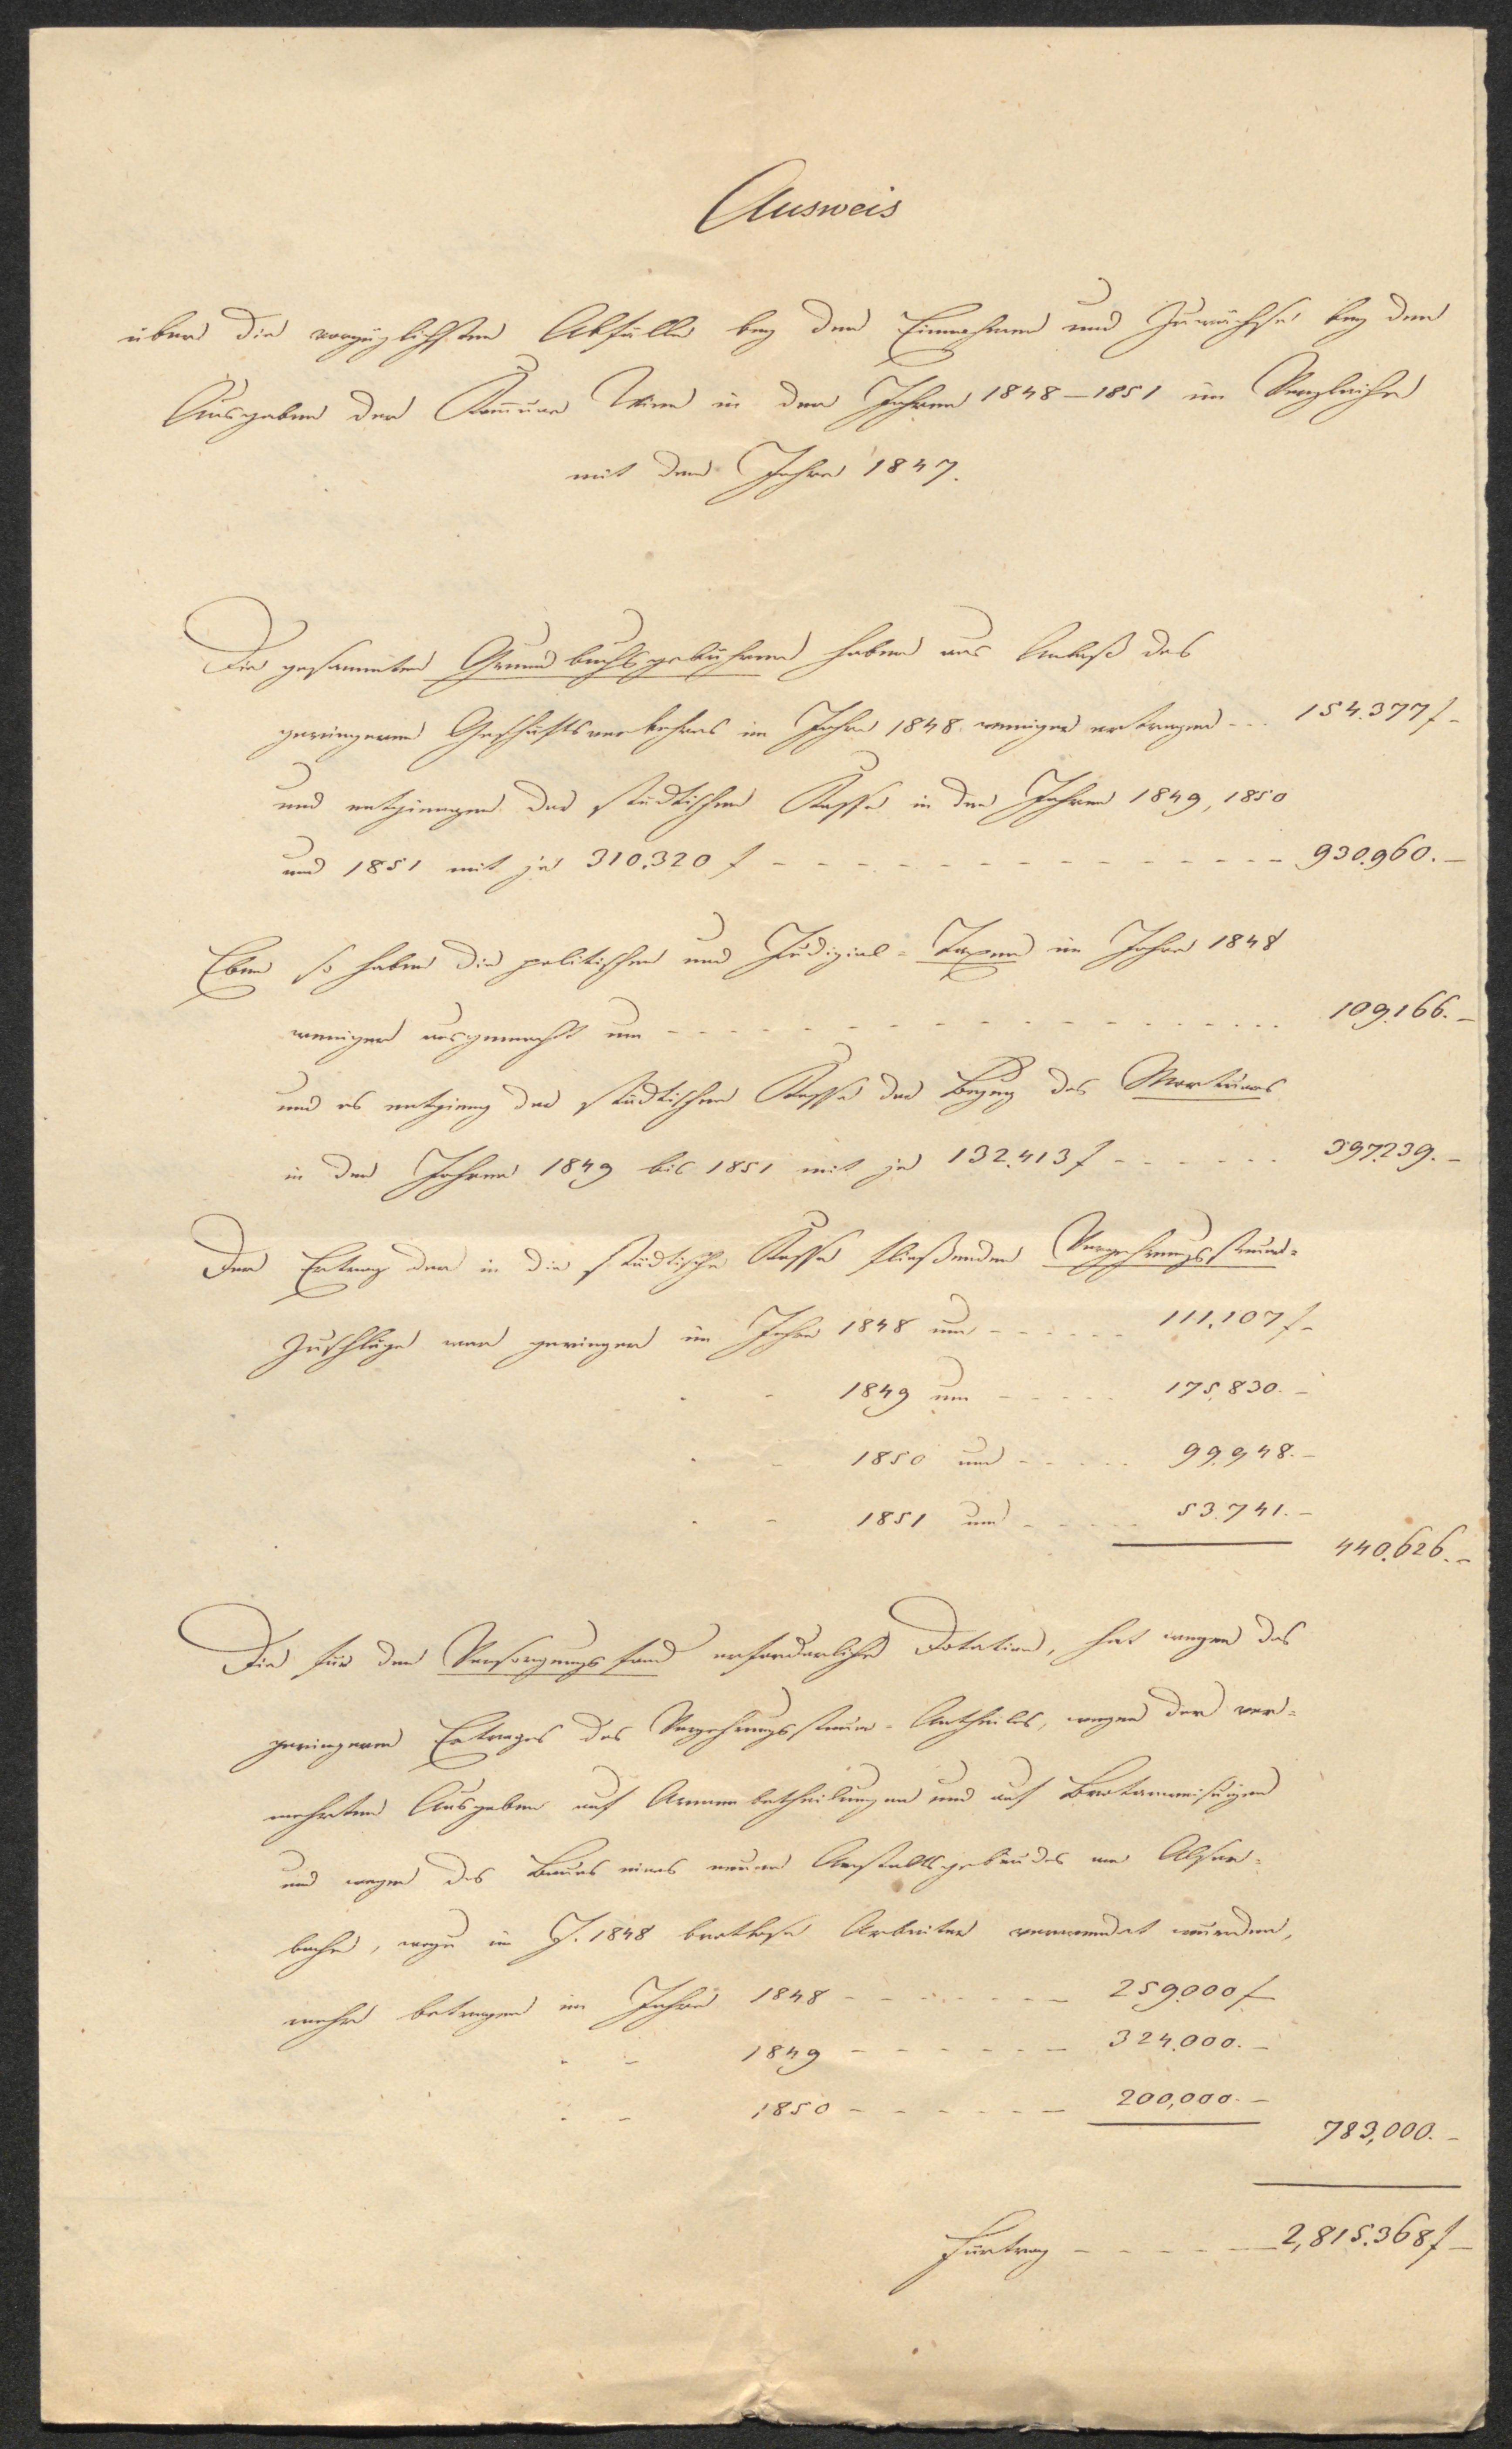 Ausweis
über die vorzüglichsten Abfälle bey den Einnahmen und Zuwächse bey den
Ausgaben der Kom̅une Wien in den Jahren 1848–1851 im Vergleiche
mit dem Jahre 1847.
Die gesammten Grundbuchsgebühren haben aus Anlaß des
geringeren Geschäftsverkehres im Jahre 1848 weniger ertragen - - - 154.377 f –
und entgiengen der städtischen Kasse in den Jahren 1849, 1850
und 1851 mit je 310.320 f - - - - - - - - - - - - - 930.960. –
Eben so haben die politischen und Judizial-Taxen im Jahre 1848
weniger ausgemacht um - - - - - - - - - - - - - 109.166. –
und es entgieng der städtischen Kasse der Bezug des Mortuars
in den Jahren 1849 bis 1851 mit je 132.413 f - - - - - - 397.239. –
Der Ertrag der in die städtische Kasse fließenden Verzehrungssteuer-
Zuschläge war geringer im Jahre 1848 um - - - - - - 111,107 f –
" " 1849 um - - - - - 175,830. –
" " 1850 um - - - - - 99,948. –
" " 1851 um - - - - - 53.741. –
440.626. –
Die für den Versorgungsfond erforderliche Dotation, hat wegen des
geringeren Ertrages des Verzehrungssteuer-Antheiles, wegen der ver-
mehrten Ausgaben auf Armenbetheilungen und auf Brotanweisungen
und wegen des Baues eines neuen Anstaltsgebäudes am Alser-
bache, wozu im J. 1848 brotlose Arbeiter verwendet wurden,
mehr betragen im Jahre 1848 - - - - - - - 259.000 f
" " 1849 - - - - - - - 324.000. –
" " 1850 - - - - - - - 200,000. –
783,000. –
Fürtrag - - - - - - 2,815.368 f –